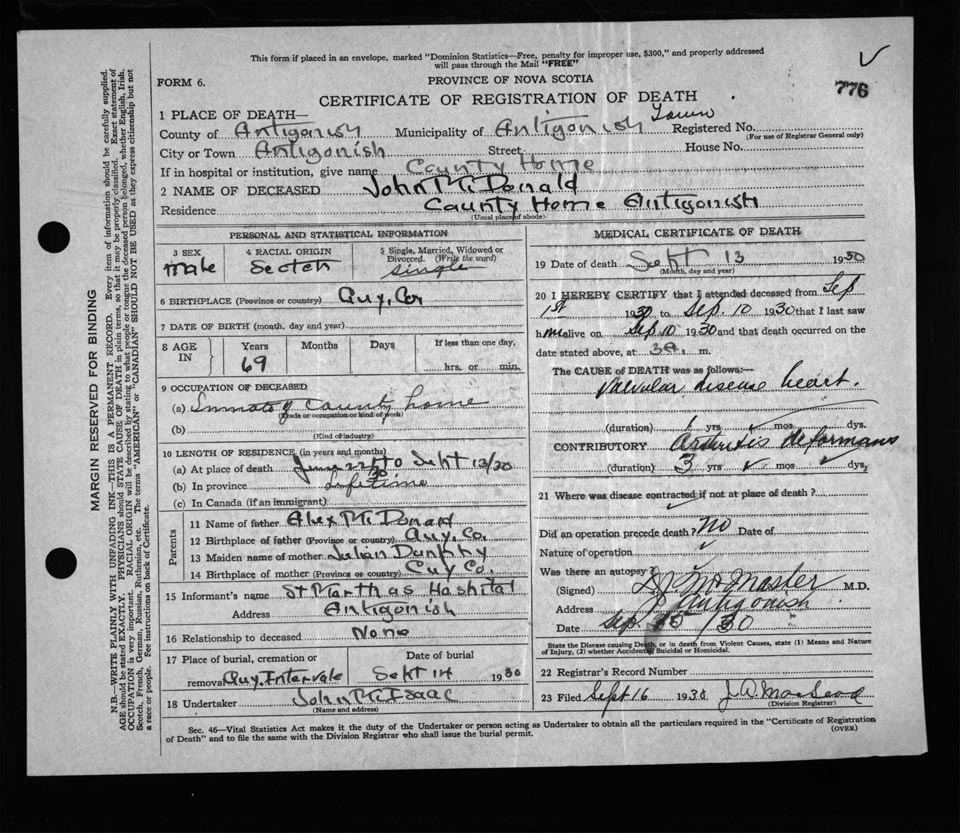 This form if placed in an envelope, marked "Dominion Statistics—Free, penalty for improper use, $300," and properly addressed
will pass through the Mail "FREE"
FORM 6.
PROVINCE OF NOVA SCOTIA
776
CERTIFICATE OF REGISTRATION OF DEATH
1 PLACE OF DEATH—
County of Antigonish Municipality of Antigonish Town Registered No.
(For use of Registrar General only)
City or Town Antigonish Street House No.
If in hospital or institution, give name County Home
2 NAME OF DECEASED John McDonald
Residence County Home Antigonish
(Usual place of abode)
PERSONAL AND STATISTICAL INFORMATION
3 SEX
male
4 RACIAL ORIGIN
Scotch
5 Single, Married, Widowed or
Divorced. (Write the word)
single
6 BIRTHPLACE (Province or country) Guy, Co
7 DATE OF BIRTH (month, day and year)
8 AGE IN
Years Months Days If less than one day,
69 hrs. or min.
9 OCCUPATION OF DECEASED
(a) Inmate of County home
(Trade or occupation or kind of work)
(b)
(Kind of industry)
10 LENGTH OF RESIDENCE (in years and months)
(a) At place of death to Sept 13/30
(b) In province Lifetime
(c) In Canada (if an immigrant)
Parents
11 Name of father Alex McDonald
12 Birthplace of father (Province or country) Guy, Co.
13 Maiden name of mother Julian Dunphy
14 Birthplace of mother (Province or country) Guy Co.
15 Informant's name St Marthas Hospital
Address Antigonish
16 Relationship to deceased None
17 Place of burial, cremation or Date of burial
removal Guy, Intervale Sept 14 1930
18 Undertaker John McIsaac
(Name and address)
MEDICAL CERTIFICATE OF DEATH
19 Date of death Sept 13 1930
(Month, day and year)
20 I HEREBY CERTIFY that I attended deceased from Sep
1st 1930 to Sep. 10 1930 that I last saw
him alive on Sep 10 1930 and that death occurred on
the date stated above, at 3 a. m.
The CAUSE OF DEATH was as follows:—
Valvular disease heart.
(duration) 1 yrs mos dys.
CONTRIBUTORY Arthritis deformans
(duration) 3 yrs mos dys,
21 Where was disease contracted if not at place of death?
Did an operation precede death? No Date of
Nature of operation
Was there an autopsy?
(Signed) McMaster M.D.
Address Antigonish
Date Sep. 15 /30
State the Disease causing Death, or in death from Violent Causes, state (1) Means and Nature
of Injury, (2) whether Accidental, Suicidal or Homicidal.
22 Registrar's Record No.
23 Filed Sept 16 1930 J. A. MacLeod
(Division Registrar)
Sec. 46—Vital Statistics Act makes it the duty of the Undertaker or person acting as Undertaker to obtain all the particulars required in the "Certificate of Registration
of Death" and to file the same with the Division Registrar who shall issue the burial permit.
(OVER)
MARGIN RESERVED FOR BINDING
N.B.—WRITE PLAINLY WITH UNFADING INK—THIS IS A PERMANENT RECORD. Every item of information should be carefully supplied.
AGE should be stated EXACTLY. PHYSICIANS should STATE CAUSE OF DEATH in plain terms, so that it may be properly classified. Exact statement of
OCCUPATION is very important. RACIAL ORIGIN will be described by stating to what people or tongue the deceased person belonged, whether English, Irish,
Scotch, French, German, Russian, Ruthenian, etc. The terms "AMERICAN" or "CANADIAN" SHOULD NOT BE USED as they express citizenship but not
a race or people. See instructions on back of Certificate.